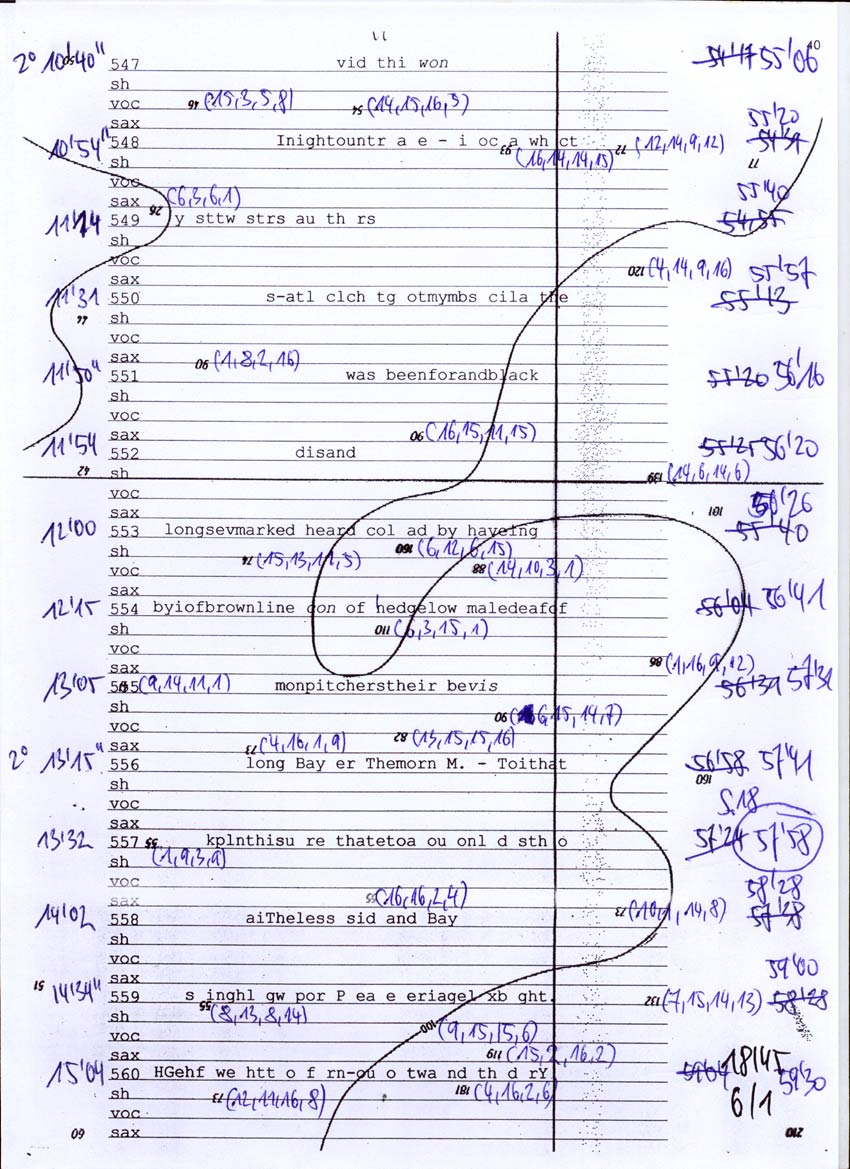 40
2° 10'40" 547 vid thi won 54'47 55'06
sh
voc 46 (15,3,5,8) 54 (14,15,16,5)
sax 55'20
10'54" 548 Inightountr a e - i oc a wh ct 72 (12,14,9,12)
sh 93 (16,14,14,15) 77
voc 55'40
sax 26 (6,3,6,1)
549 y sttw strs au th rs 54,55
sh
voc 120 (4,14,9,16) 55'57
sax
11'31 550 s-atl clch tg otmymbs cila the 55'13
44 sh
voc
sax 90 (1,8,2,16)
11'50" 551 was beenforandblack 55'20 56'16
sh
voc
sax 90 (16,15,11,15)
11'54 552 disand 55'25 56'20
42 sh 139 (14,6,14,6)
voc 56'26
sax 101
12'00 553 longsevmarked heard col ad by haveing 55'40
sh 160 (6,12,6,15)
voc 74 (15,13,11,5) 88 (14,10,3,1)
sax
12'15 554 byiofbrownline don of hedgelow maledeafof 56'04 56'41
sh 110 (6,3,15,1)
voc
sax 86 (1,16,9,12)
13'05 555 (9,14,11,1) monpitcherstheir bevis 56'39 57'31
sh 90 (6,15,14,7)
voc
sax 73 (4,16,1,9) 82 (13,15,15,16)
2° 13'15" 556 long Bay er Themorn M. - Toithat 56'58 57'41
sh 160
voc S.18
sax
13'32 557 kplnthisu re thatetoa ou onl d sth o 57'24 57'58
sh 55 (1,9,3,9)
voc 58'28
sax 55 (16,16,2,4)
14'02 558 aiTheless sid and Bay 73 (10,1,14,8) 57'28
sh
voc
sax 59'00
51 14'34" 559 s inghl gw por P ea e eriagel xb ght. 132 (7,15,14,13) 58'28
sh 55 (8,13,8,14)
voc 100 (9,15,15,6)
sax 119 (15,2,16,2) 18/45
15'04 560 HGehf we htt o f rn-ou o twa nd th d rY 59'04 59'30
sh 73 (12,11,16,8) 181 (4,16,2,6) 6/1
voc
60 sax 210